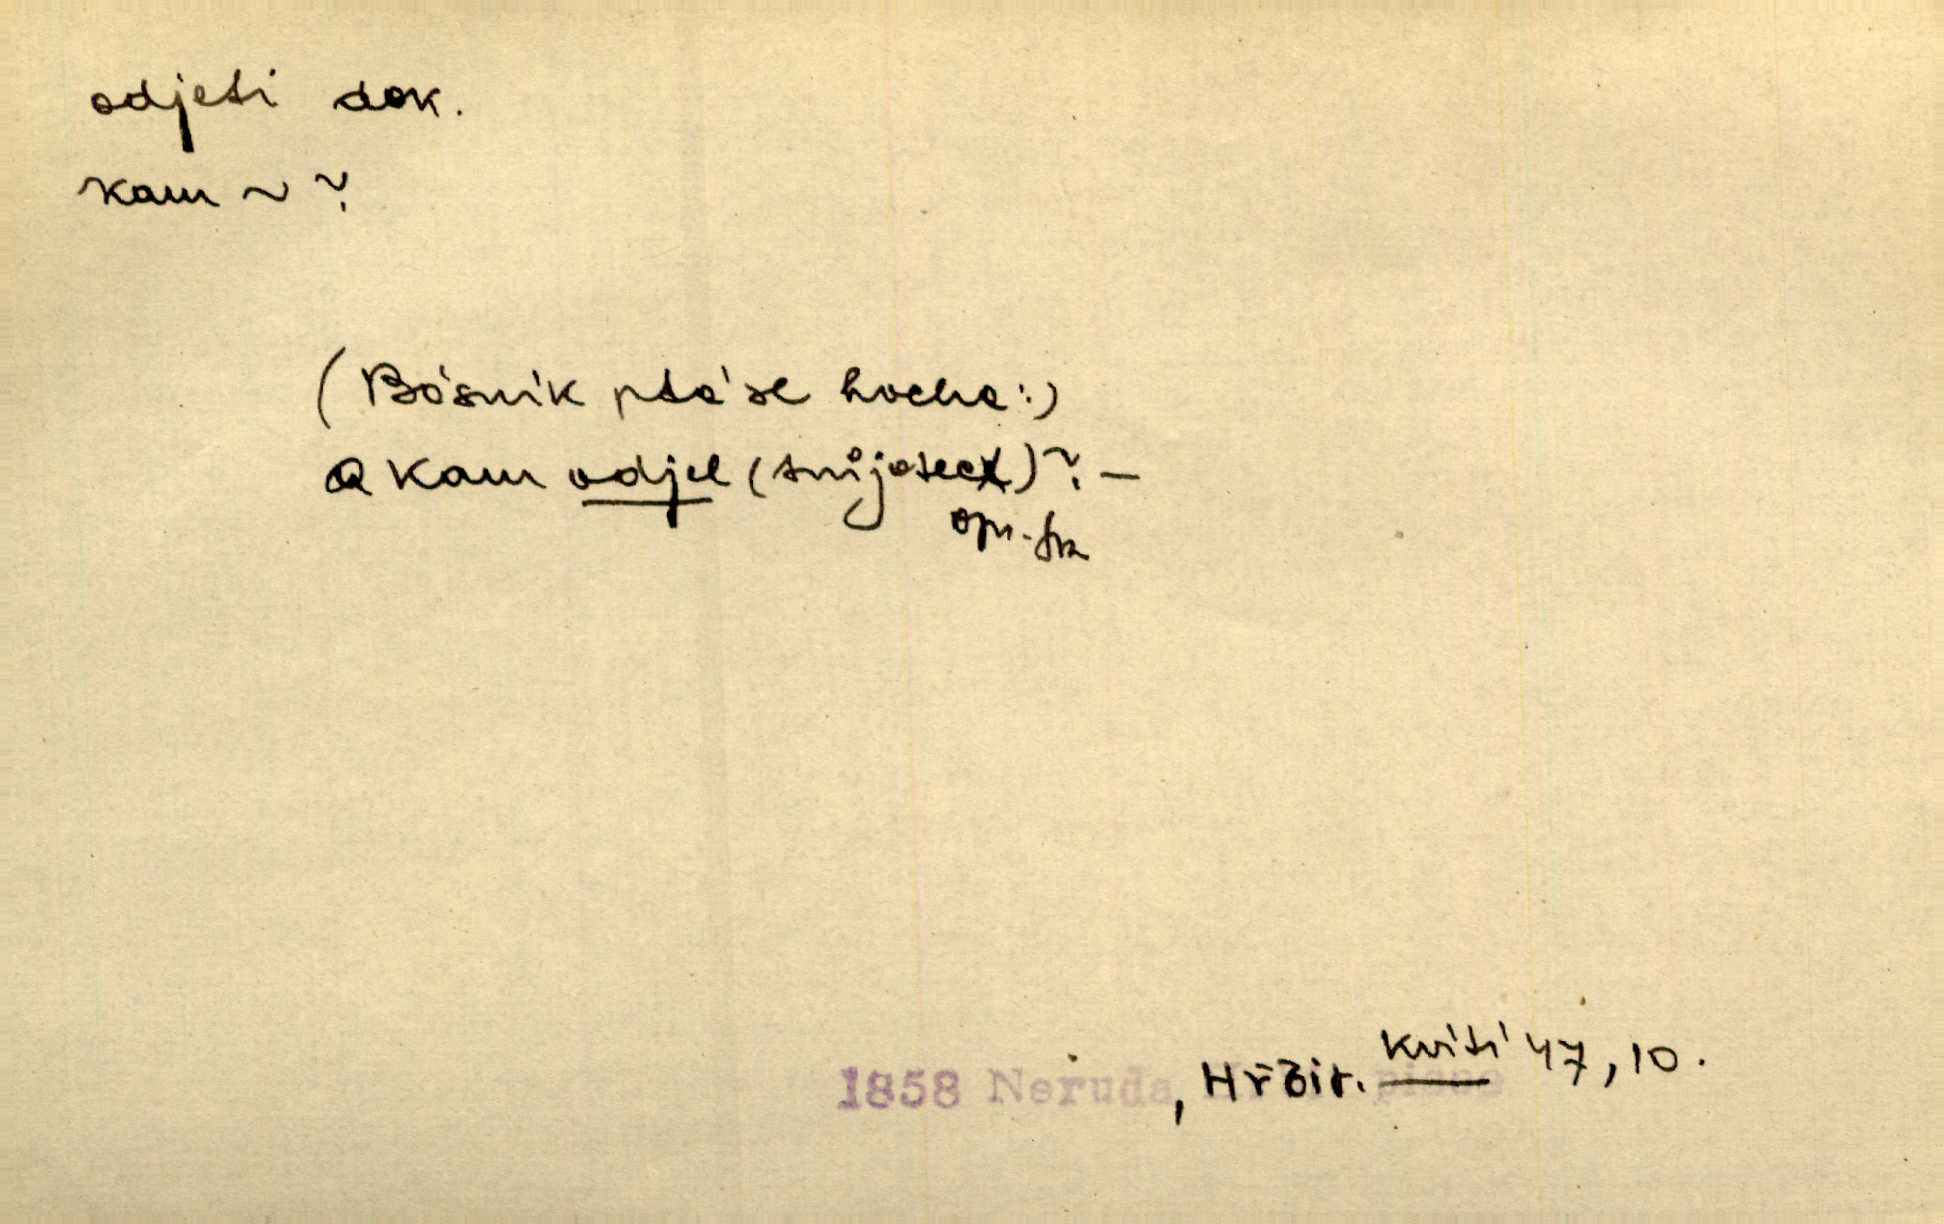 odjeti dok.
kam ~ ?
(Básník ptá se hocha:)
A kam odjel (tvůj otec)? —
opr. fk
1858 Neruda, Hřbit. kvítí 47, 10.